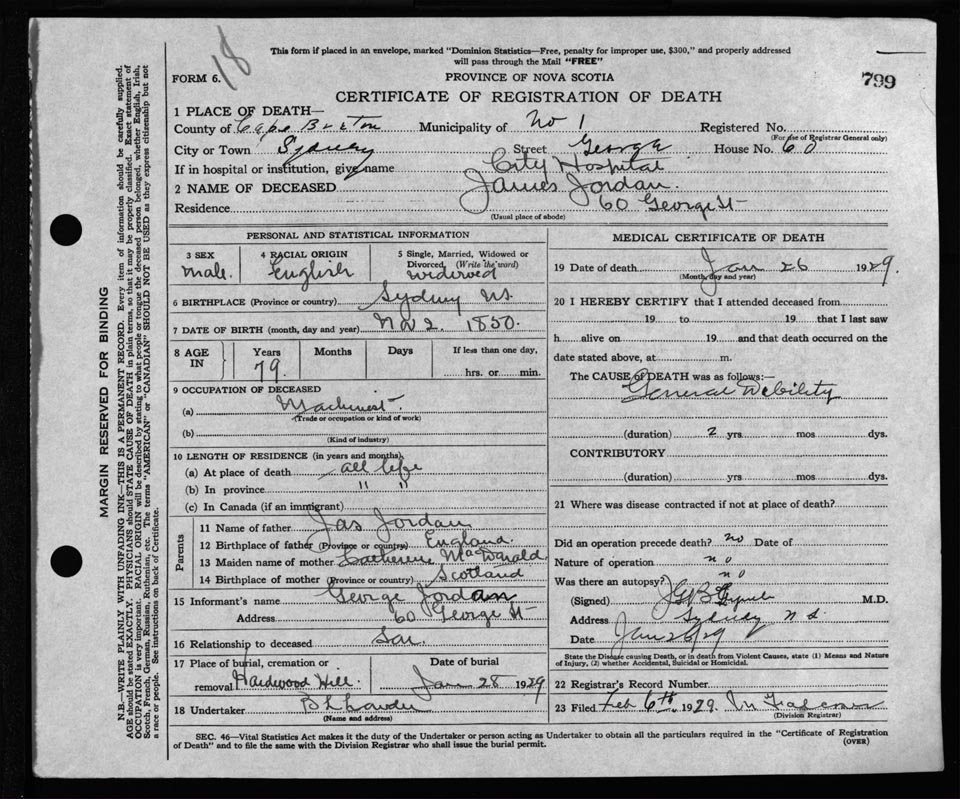 This form if placed in an envelope, marked "Dominion Statistics—Free, penalty for improper use, $300," and properly addressed
will pass through the Mail "FREE"
18
FORM 6.
PROVINCE OF NOVA SCOTIA
799
CERTIFICATE OF REGISTRATION OF DEATH
1 PLACE OF DEATH—
County of Cape Breton Municipality of No 1 Registered No.
(For use of Registrar General only)
City or Town Sydney Street George House No. 60
If in hospital or institution, give name City Hospital
2 NAME OF DECEASED James Jordan.
Residence 60 George St
(Usual place of abode)
PERSONAL AND STATISTICAL INFORMATION
3 SEX male.
4 RACIAL ORIGIN English
5 Single, Married, Widowed or
Divorced, (Write the word)
widowed
6 BIRTHPLACE (Province or country) Sydney NS.
7 DATE OF BIRTH (month, day and year) Nov 2. 1850.
8 AGE IN
Years Months Days If less than one day,
79. hrs. or min.
9 OCCUPATION OF DECEASED
(a) Machinist
(Trade or occupation or kind of work)
(b)
(Kind of industry)
10 LENGTH OF RESIDENCE (in years and months)
(a) At place of death all life
(b) In province " "
(c) In Canada (if an immigrant)
Parents
11 Name of father Jas Jordan
12 Birthplace of father (Province or country) England.
13 Maiden name of mother Catherine MacDonald
14 Birthplace of mother (Province or country) Scotland
15 Informant's name George Jordan
Address 60 George St
16 Relationship to deceased Son.
17 Place of burial, cremation or
removal Hardwood Hill
Date of burial
Jan 28 1929
18 Undertaker
(Name and address)
MEDICAL CERTIFICATE OF DEATH
19 Date of death Jan 26 1929.
(Month, day and year)
20 I HEREBY CERTIFY that I attended deceased from
19 to 19 that I last saw
h alive on 19 and that death occurred on the
date stated above, at m.
The CAUSE of DEATH was as follows:—
General Debility
(duration) 2 yrs mos dys.
CONTRIBUTORY
(duration) yrs mos dys.
21 Where was disease contracted if not at place of death?
Did an operation precede death? no Date of
Nature of operation no
Was there an autopsy? no
(Signed) M.D.
Address Sydney N S
Date Jan 26/29
State the Disease causing Death, or in death from Violent Causes, state (1) Means and Nature
of Injury, (2) whether Accidental, Suicidal or Homicidal.
22 Registrar's Record Number
23 Filed Feb 6th, 1929.
(Division Registrar)
SEC. 46—Vital Statistics Act makes it the duty of the Undertaker or person acting as Undertaker to obtain all the particulars required in the "Certificate of Registration
of Death" and to file the same with the Division Registrar who shall issue the burial permit.
(OVER)
MARGIN RESERVED FOR BINDING
N.B.—WRITE PLAINLY WITH UNFADING INK—THIS IS A PERMANENT RECORD. Every item of information should be carefully supplied.
AGE should be stated EXACTLY. PHYSICIANS should STATE CAUSE OF DEATH in plain terms, so that it may be properly classified. Exact statement of
OCCUPATION is very important. RACIAL ORIGIN will be described by stating to what people or tongue the deceased person belonged, whether English, Irish,
Scotch, French, German, Russian, Ruthenian, etc. The terms "AMERICAN" or "CANADIAN" SHOULD NOT BE USED as they express citizenship but not
a race or people. See instructions on back of Certificate.